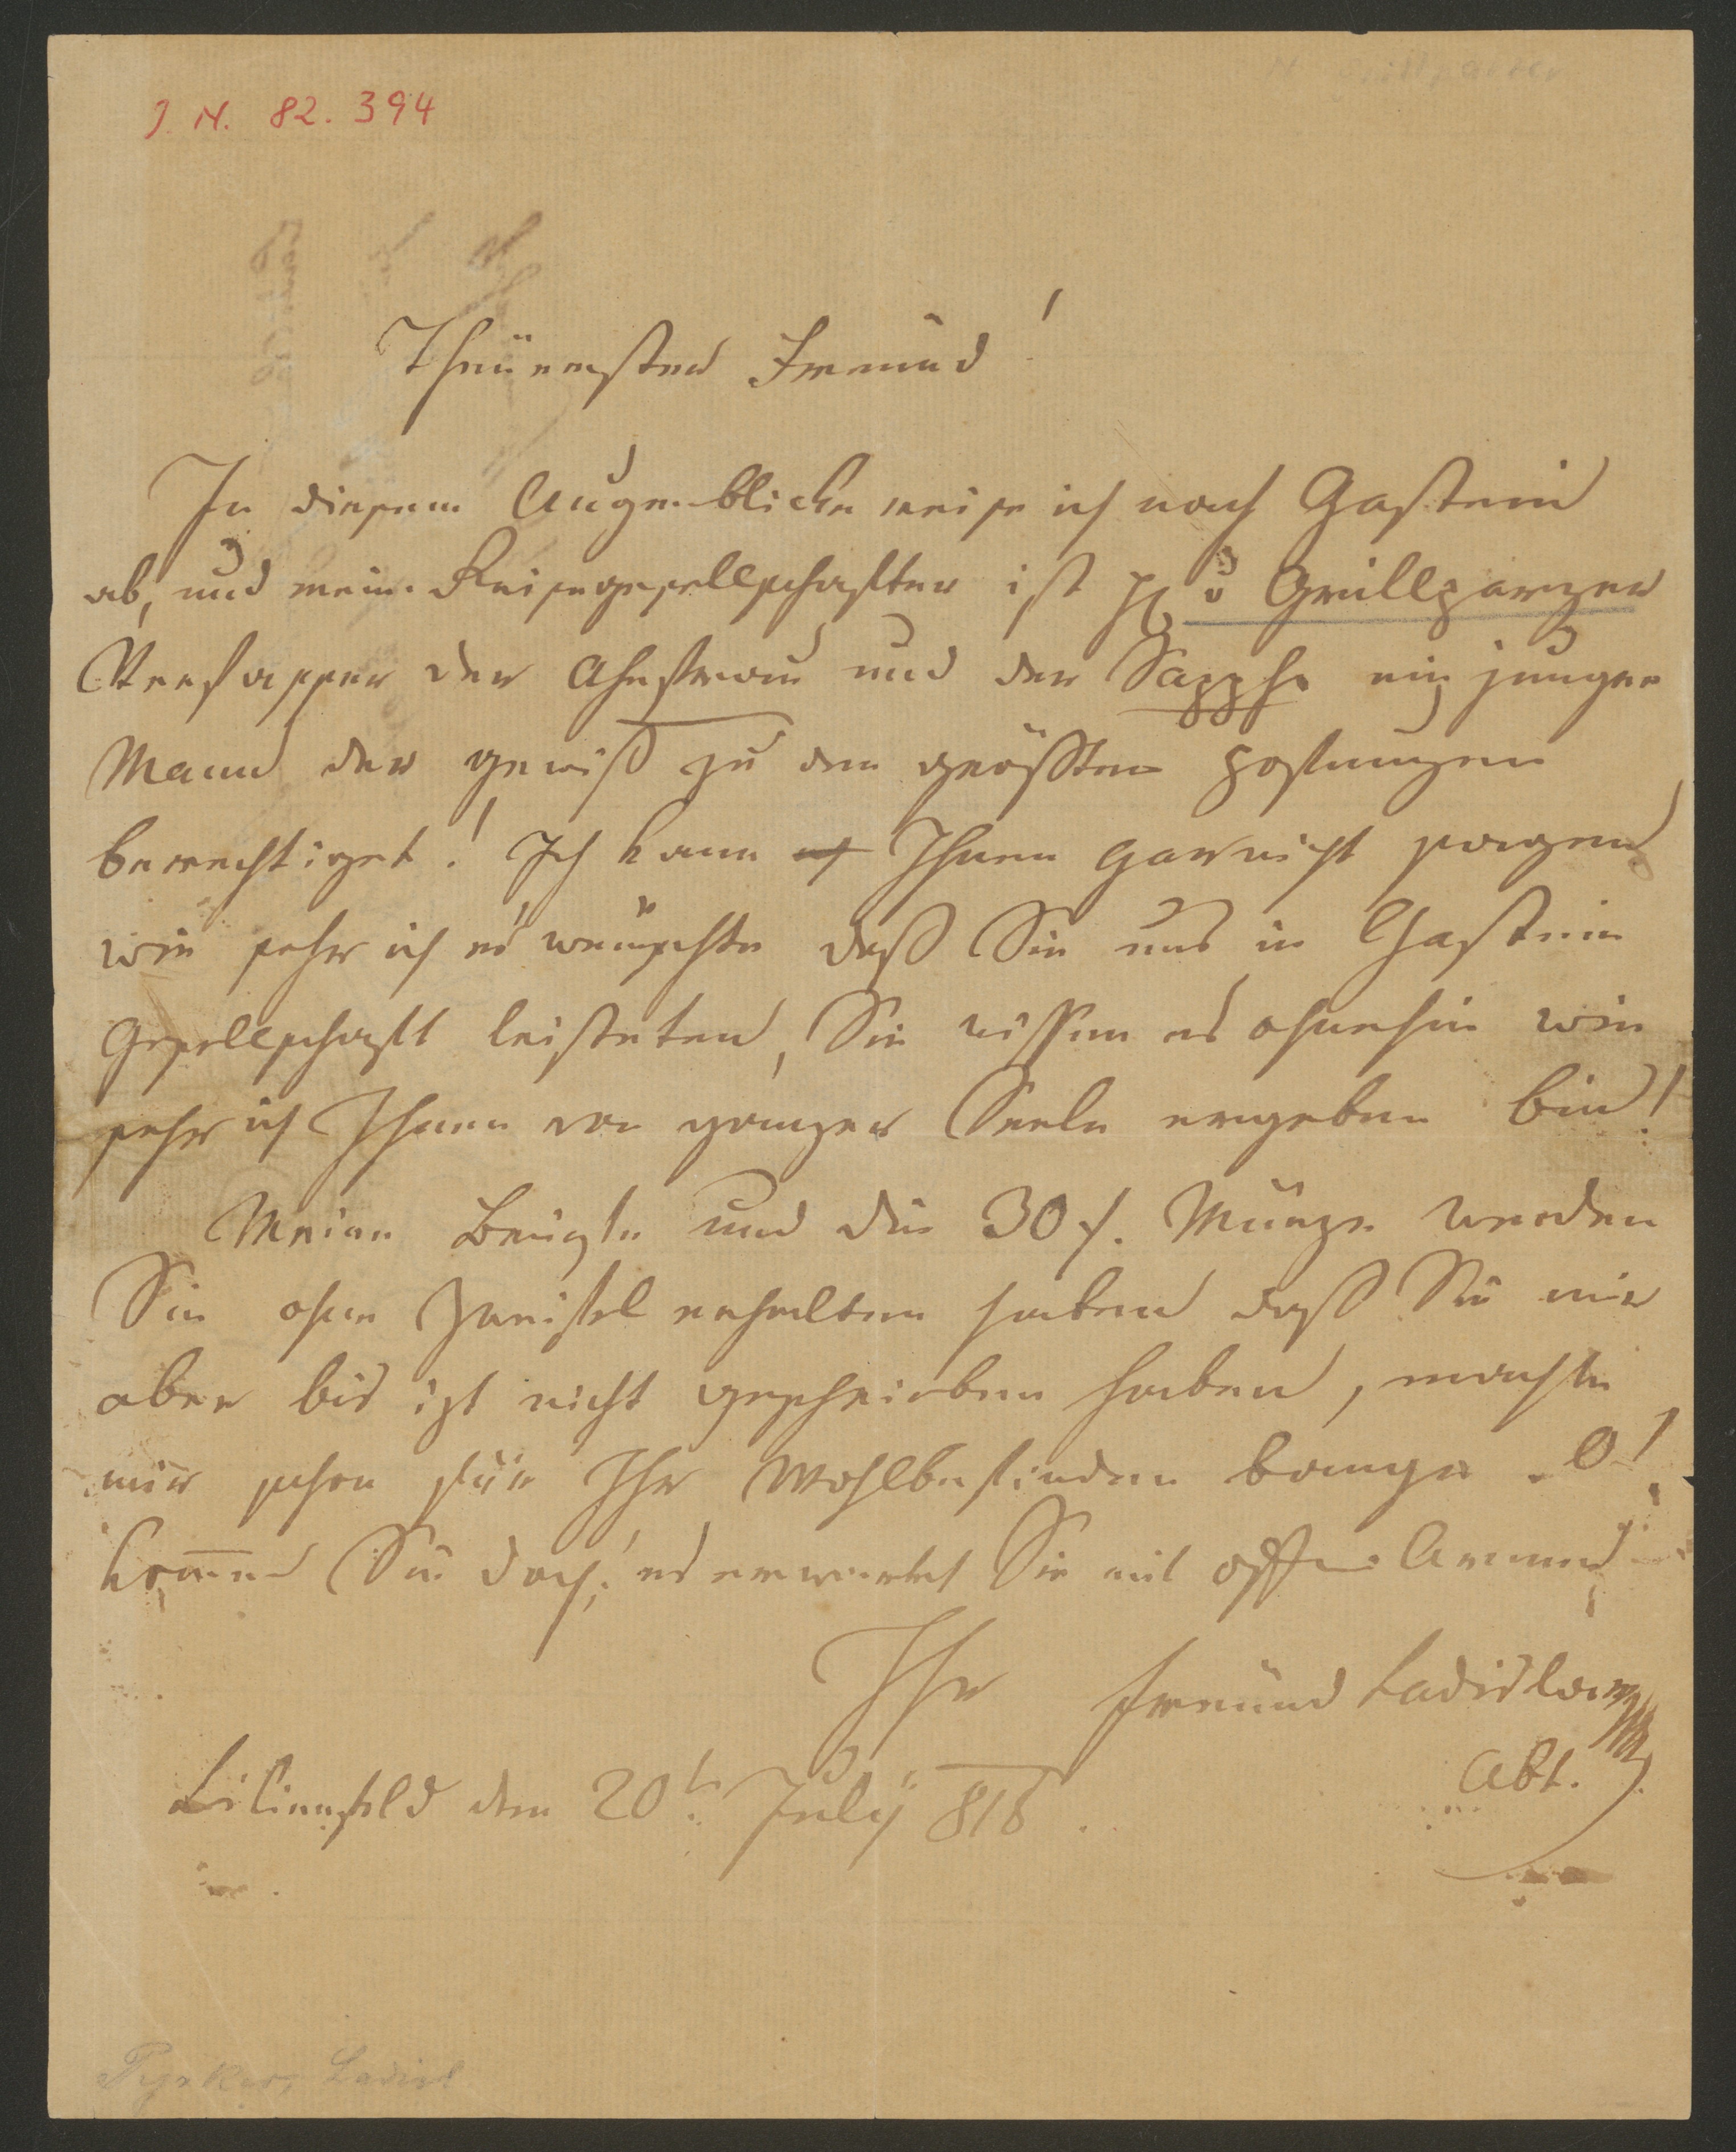 J. N. 82.394
Theüerster Freund!
In diesem Augenblicke reise ich nach Gastein
ab, und mein Reisegesellschafter ist H v Grillparzer
Verfasser der Ahnfrau und der Sappho ein junger
Mann der gewiß zu den größten Hofnungen
berechtiget! Ich kann Ihnen gar nicht sagen
wie sehr ich es wünschte daß Sie uns in Gastein
Gesellschaft leisteten, Sie wissen es ohnehin wie
sehr ich Ihnen von ganzer Seele ergeben bin!
Meine und die 30 f. Münze werden
Sie ohne Zweifel erhalten haben daß Sie mir
aber bis izt nicht geschrieben haben, machte
mir schon für Ihr Wohlbefinden bange. O!
kom̅en Sie doch! es erwartet Sie mit offnen Armen
Ihr Freund Ladislav
Abt.
Lilienfeld den 20t. July 818.
Pyrker, Ladisl